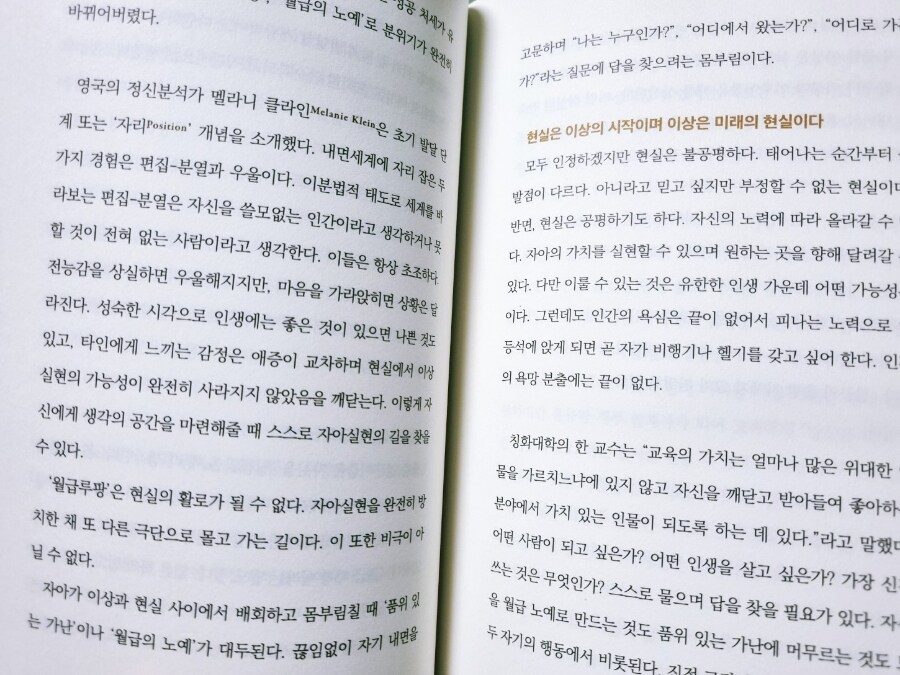 성공 처세가 유
'월급의 노예'로 분위기가 완전히
바뀌어버렸다.
영국의 정신분석가 멜라니 클라인Melanie Klein은 초기 발달 단
계 또는 '자리Position' 개념을 소개했다. 내면세계에 자리 잡은 두
가지 경험은 편집-분열과 우울이다. 이분법적 태도로 세계를 바
라보는 편집-분열은 자신을 쓸모없는 인간이라고 생각하거나 못
할 것이 전혀 없는 사람이라고 생각한다. 이들은 항상 초조하다.
전능감을 상실하면 우울해지지만, 마음을 가라앉히면 상황은 달
라진다. 성숙한 시각으로 인생에는 좋은 것이 있으면 나쁜 것도
있고, 타인에게 느끼는 감정은 애증이 교차하며 현실에서 이상
실현의 가능성이 완전히 사라지지 않았음을 깨닫는다. 이렇게 자
신에게 생각의 공간을 마련해줄 때 스스로 자아실현의 길을 찾을
수 있다.
'월급루팡'은 현실의 활로가 될 수 없다. 자아실현을 완전히 방
치한 채 또 다른 극단으로 몰고 가는 길이다. 이 또한 비극이 아
닐 수 없다.
자아가 이상과 현실 사이에서 배회하고 몸부림칠 때 '품위 있
는 가난'이나 '월급의 노예'가 대두된다. 끊임없이 자기 내면을
고문하며 "나는 누구인가?", "어디에서 왔는가?", "어디로 가
가?"라는 질문에 답을 찾으려는 몸부림이다.
현실은 이상의 시작이며 이상은 미래의 현실이다
모두 인정하겠지만 현실은 불공평하다. 태어나는 순간부터
발점이 다르다. 아니라고 믿고 싶지만 부정할 수 없는 현실이다
반면, 현실은 공평하기도 하다. 자신의 노력에 따라 올라갈 수
다. 자아의 가치를 실현할 수 있으며 원하는 곳을 향해 달려갈
있다. 다만 이룰 수 있는 것은 유한한 인생 가운데 어떤 가능성
이다. 그런데도 인간의 욕심은 끝이 없어서 피나는 노력으로
등석에 앉게 되면 곧 자가 비행기나 헬기를 갖고 싶어 한다. 인
의 욕망 분출에는 끝이 없다.
칭화대학의 한 교수는 "교육의 가치는 얼마나 많은 위대한
물을 가르치느냐에 있지 않고 자신을 깨닫고 받아들여 좋아하
분야에서 가치 있는 인물이 되도록 하는 데 있다."라고 말했다
어떤 사람이 되고 싶은가? 어떤 인생을 살고 싶은가? 가장 신
쓰는 것은 무엇인가? 스스로 물으며 답을 찾을 필요가 있다. 자
을 월급 노예로 만드는 것도 품위 있는 가난에 머무르는 것도
두 자기의 행동에서 비롯된다.